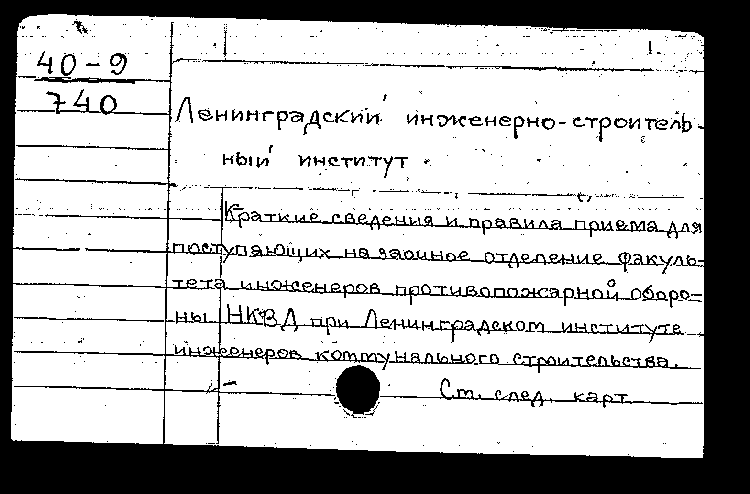 1.
40-9
740
Ленинградский инженерно-строитель-
ный институт.
Краткие сведения и правила приема для
поступающих на заочное отделение факуль-
тета инженеров противопожарной оборо-
ны НКВД при Ленинградском институте
инженеров коммунального строительства.
Ст. след. карт.